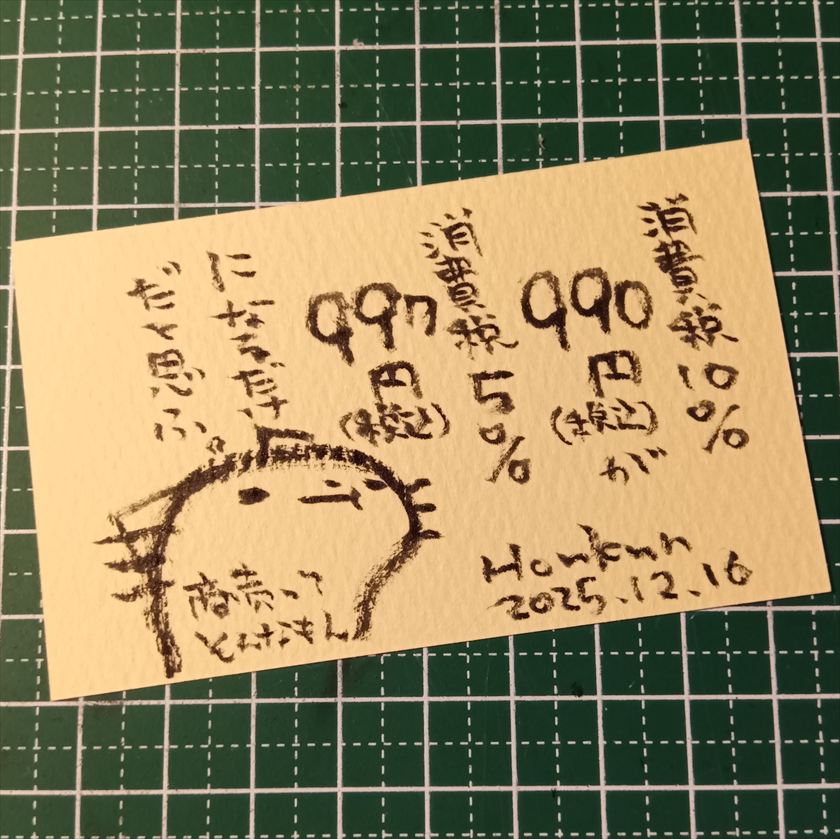 消費税10%
990円(税込)が
消費税5%
990円(税込)
になるだけ
だと思ふ。
商売って
そんなもん
Honkun
2025.12.16